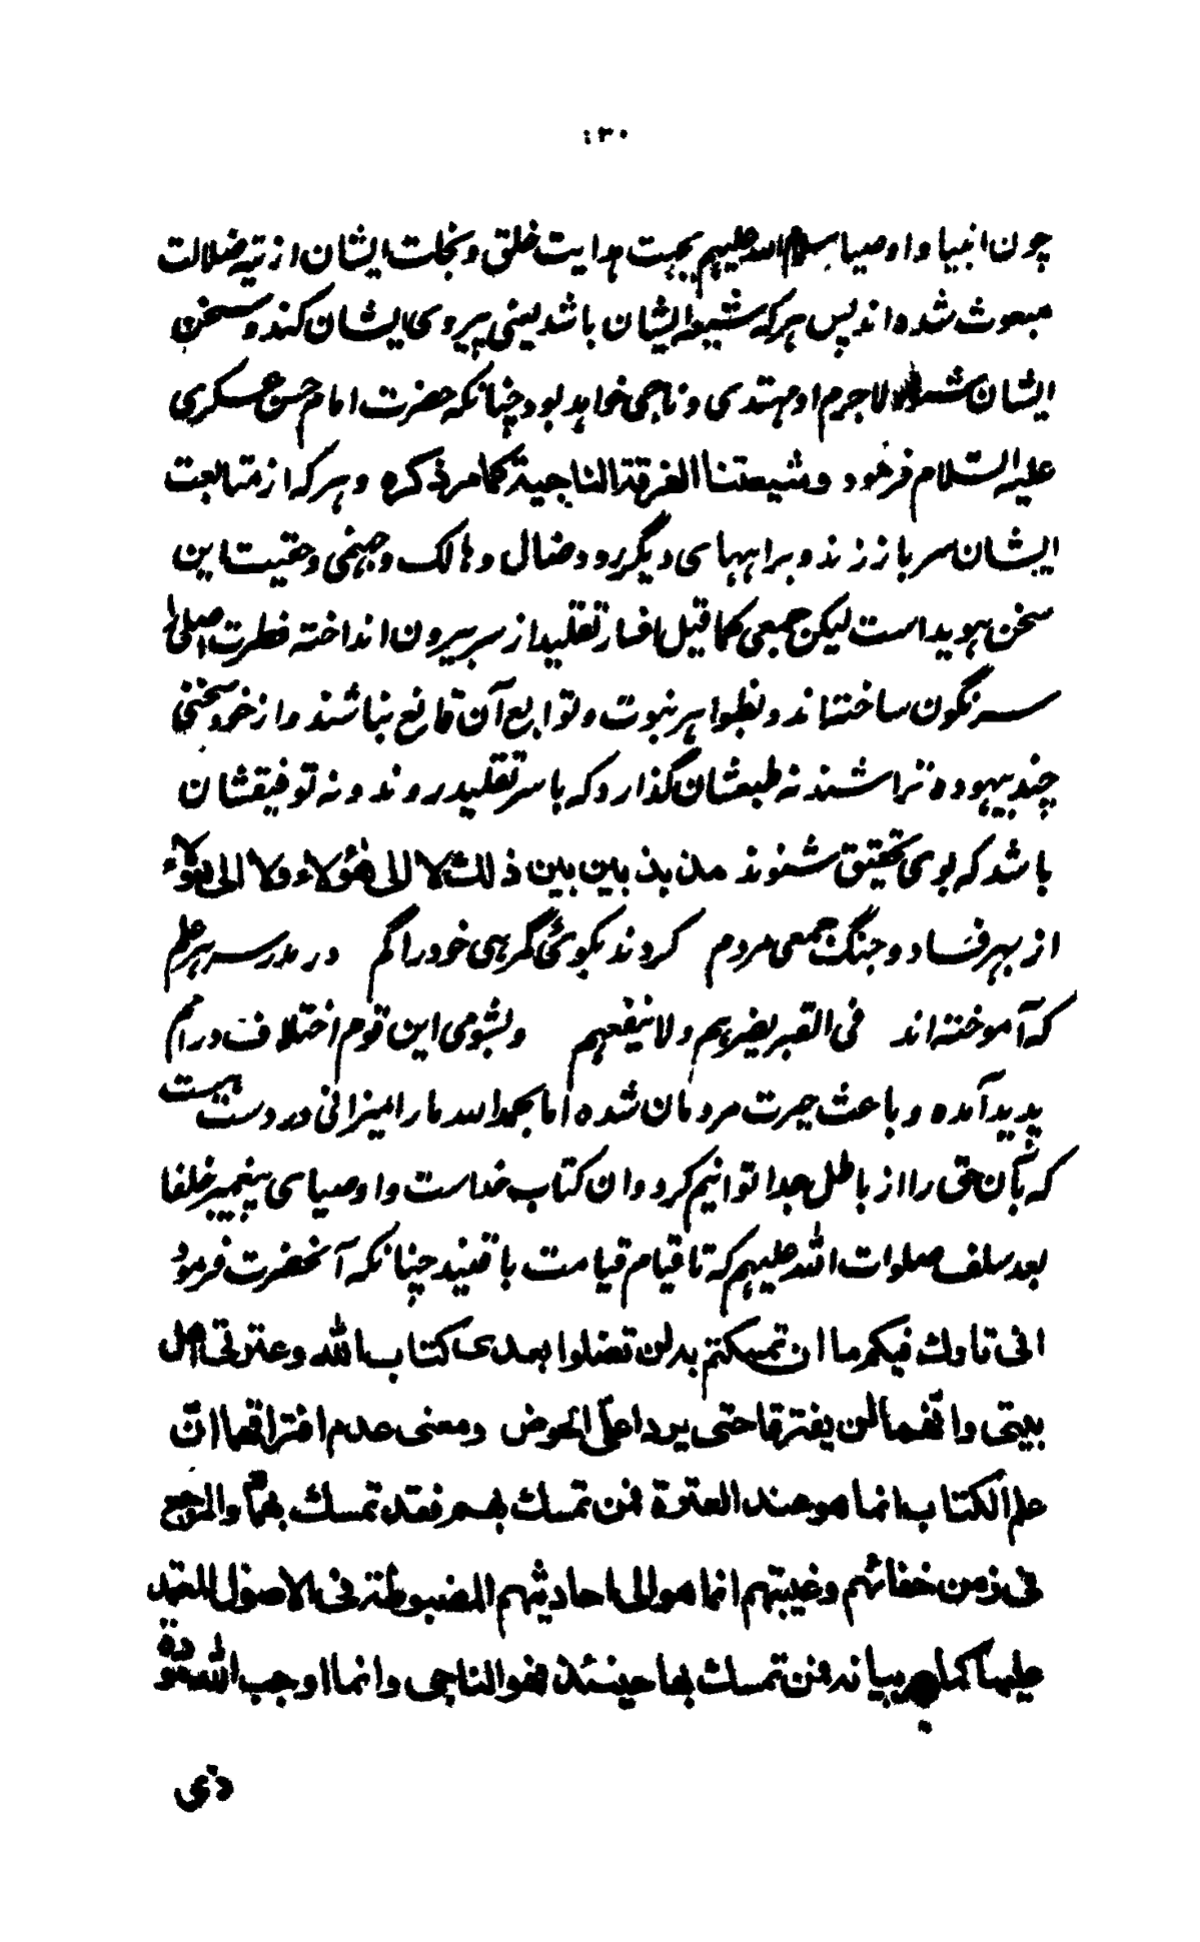 ۱۳۰
چون انبیا و اوصیا سلام الله علیهم بجهت هدایت خلق و نجات ایشان از تیه ضلالت
مبعوث شده اند پس هر که شیعه ایشان باشد یعنی پیروی ایشان کند و سخن
ایشان شنود لاجرم او مهتدی و ناجی خواهد بود چنانکه حضرت امام حسن عسکری
علیه السلام فرمود و شیعتنا الفرقة الناجیة کما مر ذکره و هر که از متابعت
ایشان سر باز زند و براههای دیگر رود ضال و هالک و جهنمی و حقیت این
سخن هویداست لیکن جمعی کما قیل افسار تقلید از سر بیرون انداخته فطرت اصلی را
سرنگون ساخته‌اند و بظواهر نبوت و توابع آن قانع نباشند و از خود سخنی
چند بیهوده تراشند نه طبعشان گذارد که با سر تقلید روند و نه توفیقشان
باشد که بوی تحقیق شنوند مذبذبین بین ذلك لا الی هؤلاء ولا الی هؤلاء
از بهر فساد و جنگ جمعی مردم کردند بکوی گمرهی خود را گم در مدرسه هر علم
که آموخته اند فی القبر یضرهم ولا ینفعهم و بشومی این قوم اختلاف در امم
پدید آمده و باعث حیرت مردمان شده اما بحمد الله ما را میزانی در دست هست
که بآن حق را از باطل جدا توانیم کرد و ان کتاب خداست و اوصیای پیغمبر خلفا
بعد سلف صلوات الله علیهم که تا قیام قیامت باقیند چنانکه آنحضرت فرمود
انی تارك فیکم ما ان تمسکتم به لن تضلوا بعدی کتاب الله وعترتی اهل
بیتی وانهما لن یفترقا حتی یردا علی الحوض ومعنی عدم افتراقهما ان
علم الکتاب انما هو عند العترة فمن تمسك بهم فقد تمسك بهما والمرجع
فی زمن خفائهم وغیبتهم انما هو الی احادیثهم المضبوطة فی الاصول المعتمد
علیها کما مر بیانه فمن تمسك بها حینئذ فهو الناجی وانما اوجب الله مودة
ذی